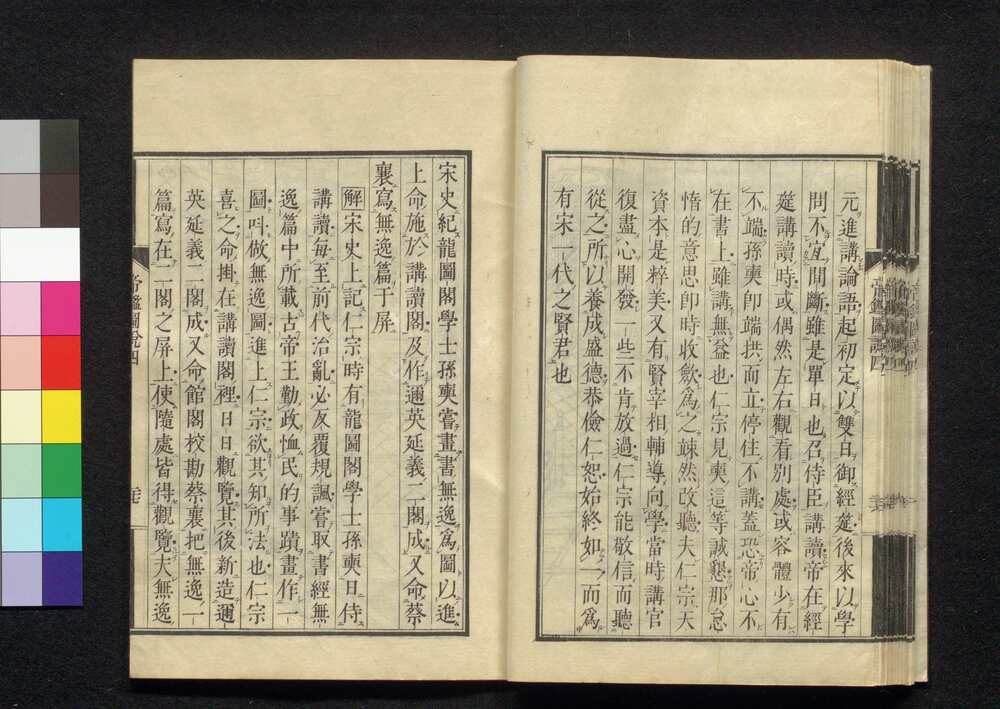 元進講論語起初定以雙日御經筵後來以學
問不宜間斷雖是單日也召侍臣講讀帝在經
筵講讀時或偶然左右觀看別處或容體少有
不端孫奭卽端拱而立停住不講蓋恐帝心不
在書上雖講無益也仁宗見奭這等誠懇那怠
惰的意思卽時收斂爲之竦然改聽夫仁宗天
資本是粹美又有賢宰相輔導向學當時講官
復盡心開發一些不肯放過仁宗能敬信而聽
從之所以養成盛德恭儉仁恕始終如一而爲
有宋一代之賢君也
宋史紀龍圖閣學士孫奭嘗畫書無逸爲圖以進
上命施於講讀閣及作邇英延義二閣成又命蔡
襄寫無逸篇于屏
解宋史上記仁宗時有龍圖閣學士孫奭日侍
講讀每至前代治亂必反覆規諷嘗取書經無
逸篇中所載古帝王勤政恤民的事蹟畫作一
圖叫做無逸圖進上仁宗欲其知所法也仁宗
喜之命掛在講讀閣裡日日觀覽其後新造邇
英延義二閣成又命館閣校勘蔡襄把無逸一
篇寫在二閣之屏上使隨處皆得觀覽夫無逸
帝鑑圖說四